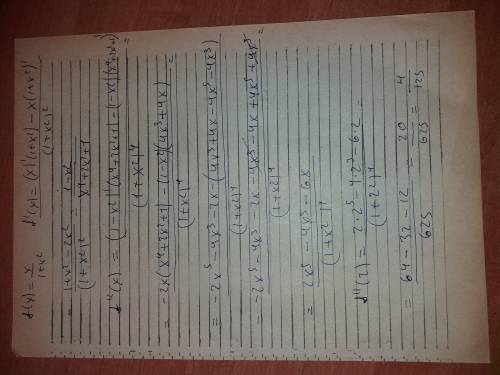 f(x) = x/(1+x²) f'(x) = ((x)'(1+x²) − x(1+x²)')/(1+x²)² =
= (1+x²−2x²)/(1+x²)² = (1−x²)/(x⁴+2x²+1)
f''(x) = ((1−x²)'(x⁴+2x²+1) − (1−x²)(x⁴+2x²+1)')/(1+x²)⁴ =
= (−2x(x⁴+2x²+1) − (1−x²)(4x³+4x))/(1+x²)⁴ =
= (−2x⁵−4x³−2x−(4x³+4x−4x⁵−4x³))/(1+x²)⁴ =
= (−2x⁵−4x³−2x−4x³−4x+4x⁵+4x³)/(1+x²)⁴ =
= (2x⁵−4x³−6x)/(1+x²)⁴
f''(2) = (2·2⁵−4·2³−6·2)/(1+2²)⁴ =
= (64−32−12)/625 = 20/625 = 4/125